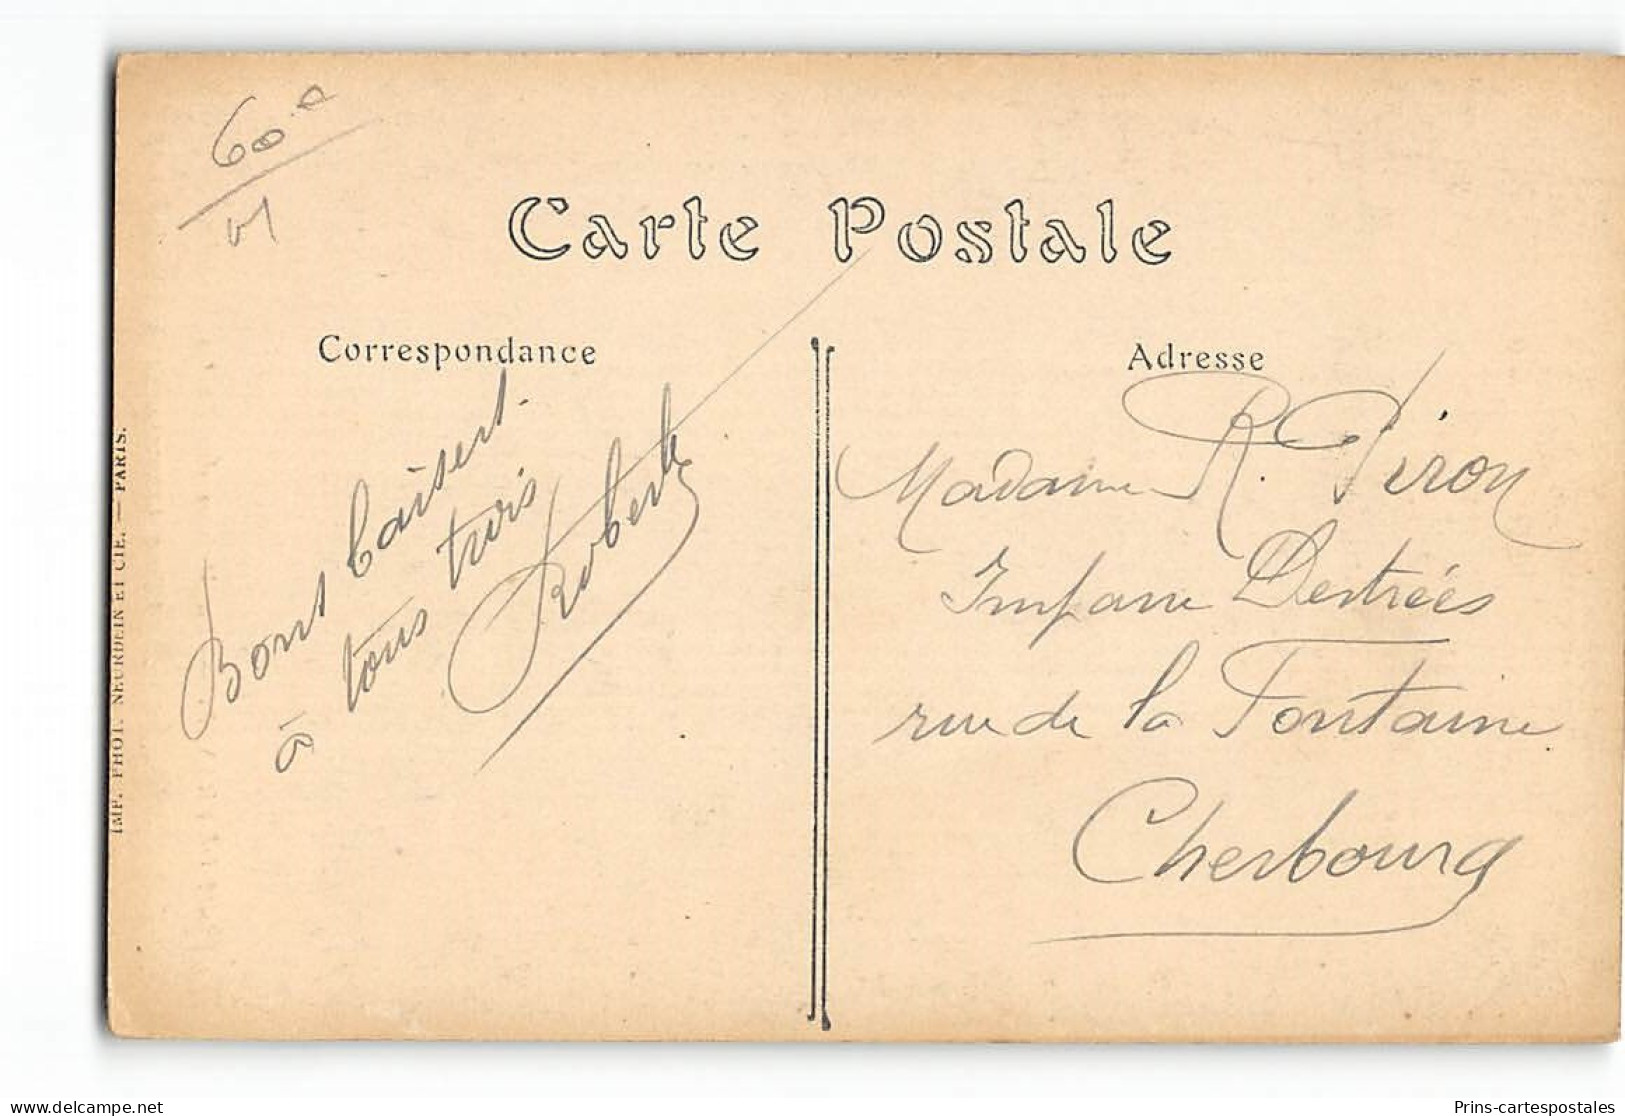 60
Carte Postale
Correspondance
Bons baisers
à tous trois
Robert
Adresse
Madame R. Piron
Impasse Destrées
rue de la Fontaine
Cherbourg
IMP. PHOT. NEURDEIN ET CIE. — PARIS.
www.delcampe.net
Prins-cartespostales